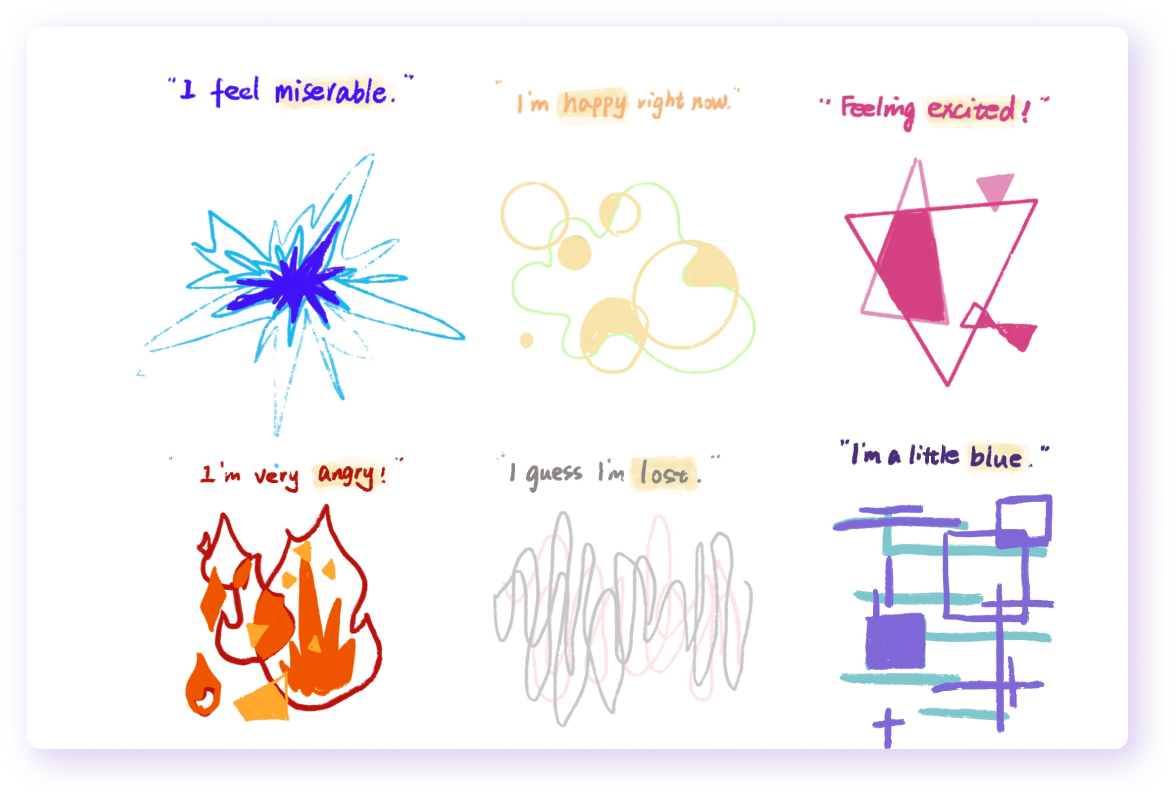 "I feel miserable."
"I'm happy right now."
"Feeling excited!"
"I'm very angry!"
"I guess I'm lost."
"I'm a little blue."